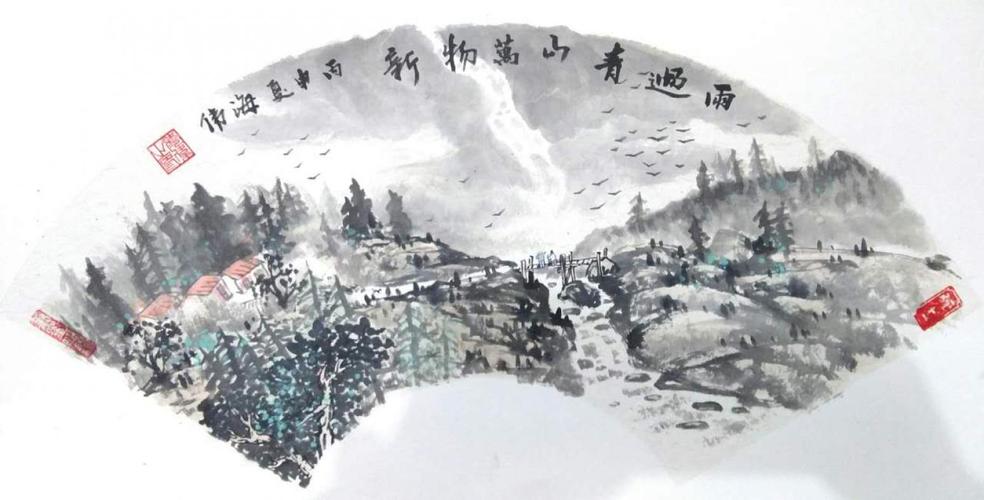 雨過青山萬物新
丙申夏海偉